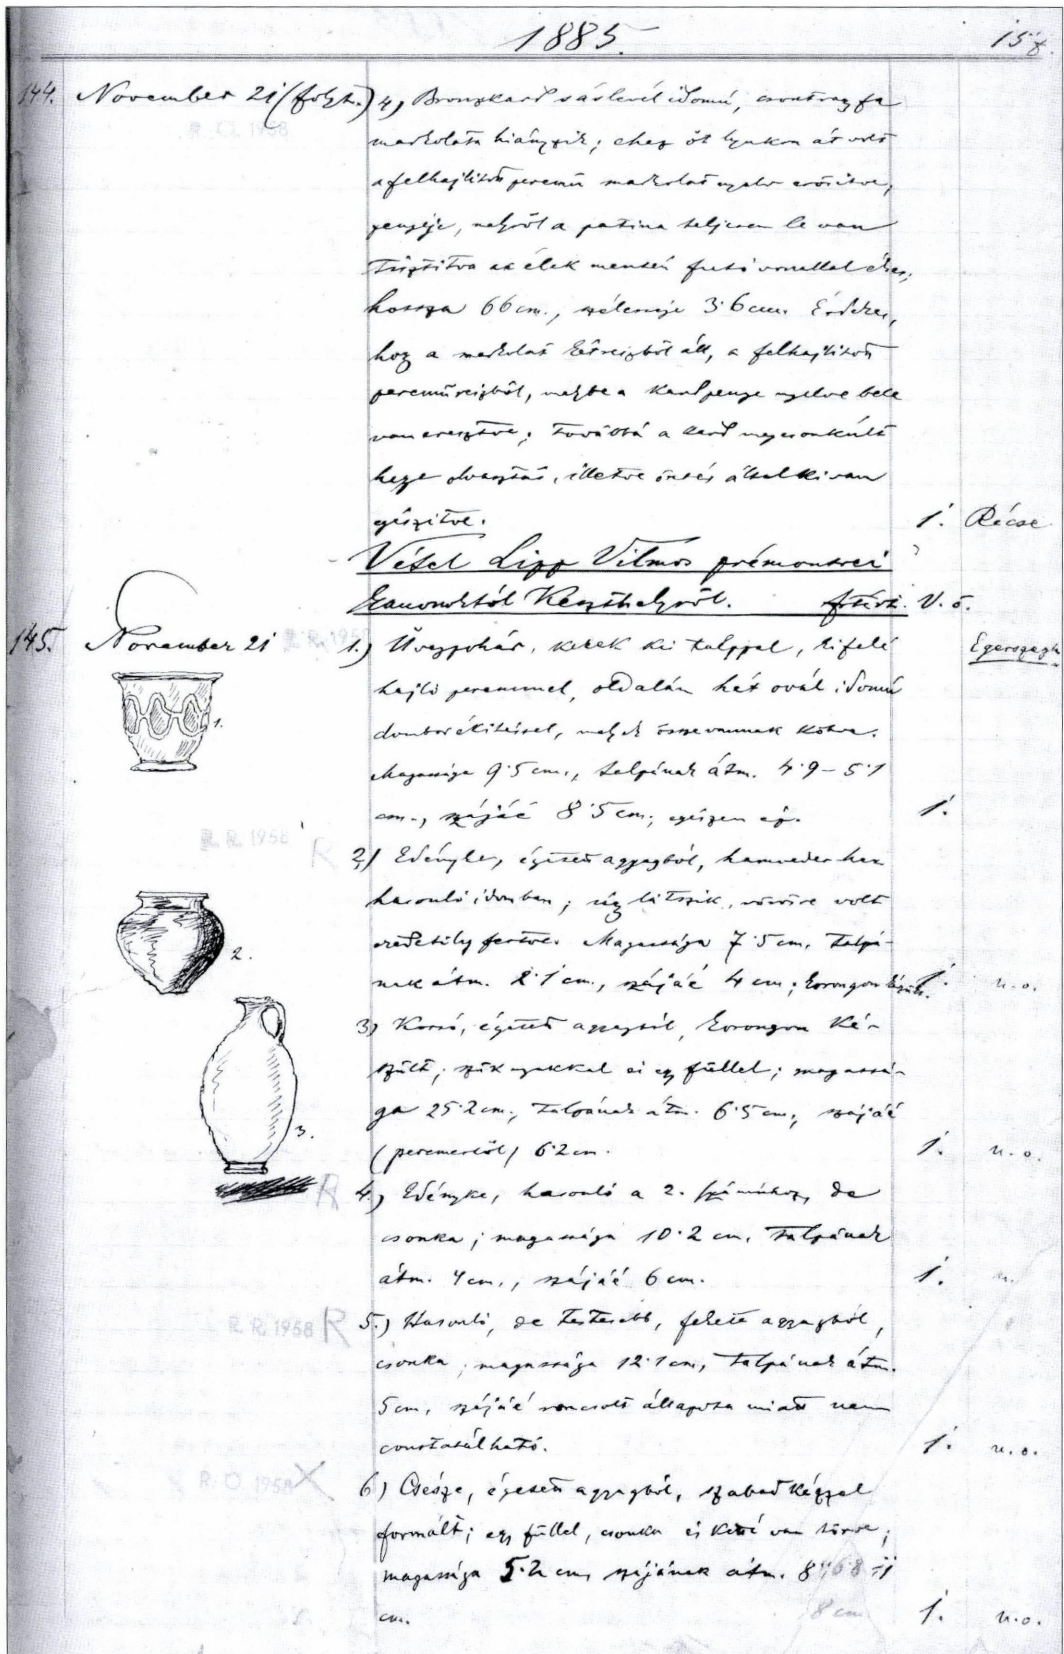 1885.
157.
144. November 21 (folyt.) 4) Bronzkard sáslevél idomú, csont vagy fa
R. O. 1958
markolata hiányzik; ehez öt lyukon át volt
a felhajlitott peremű markolat nyelv erősitve,
pengéje, melyről a patina teljesen le van
tisztitva az élek mentén futó vonallal ékes;
hossza 66 cm., szélessége 3·6 cm. Érdekes,
hogy a markolat két részből áll, a felhajlitott
peremű részből, melybe a kard penge nyelve bele
van eresztve; továbbá a kard megcsonkúlt
hegye olvasztás, illetve öntés által ki van
egészitve. 1. Récse
Vétel Lipp Vilmos prémontrei
kanonoktól Keszthelyről. V. ö.
145. November 21 1.) Üvegpohár, kerek kis talppal, kifelé Egerszegh
hajló peremmel, oldalán hét ovál idomú
domborékitéssel, melyek össze vannak kötve.
1.
Magassága 9·5 cm., talpának átm. 4·9 – 5·1
cm., szájáé 8·5 cm; egészen ép. 1.
R. R. 1958 R
2) Edényke, égetett agyagból, hamvederhez
hasonló idomban; úgy látszik, vörösre volt
eredetileg festve. Magassága 7·5 cm, talpá-
2.
nak átm. 2·1 cm., szájáé 4 cm; korongon készült. 1. u. o.
3) Korsó, égetett agyagból, korongon ké-
szült; szük nyakkal és egy füllel; magassá-
ga 25·2 cm., talpának átm. 6·5 cm., szájáé
3.
(peremestől) 6·2 cm. 1. u. o.
R 4.) Edényke, hasonló a 2. számúhoz, de
csonka; magassága 10·2 cm, talpának
átm. 4 cm., szájáé 6 cm. 1. u.
R. R. 1958 R 5.) Hasonló, de testesebb, fekete agyagból,
csonka; magassága 12·1 cm, talpának átm.
5 cm, szájáé roncsolt állapota miatt nem
constatálható. 1. u. o.
R. O. 1958 X 6) Csésze, égetett agyagból, szabad kézzel
formált; egy füllel, csonka és ketté van törve;
magassága 5·2 cm, szájának átm.
cm. 8 cm 1. u. o.